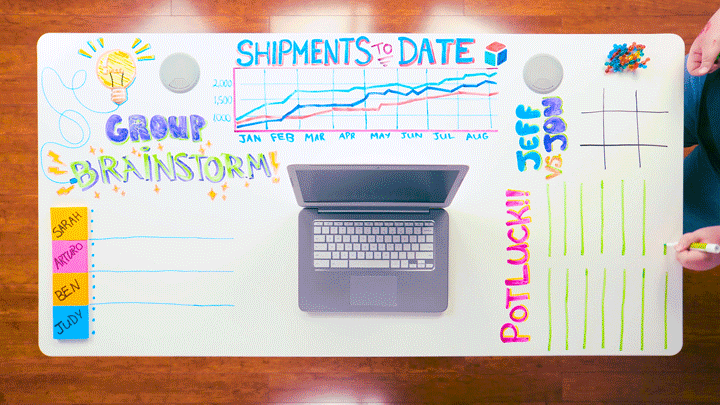 GROUP
BRAINSTORM!
SHIPMENTS TO DATE
2,000
1,500
1000
JAN FEB MAR APR MAY JUN JUL AUG
JEFF
VS. JON
POTLUCK!!
SARAH
ARTURO
BEN
JUDY